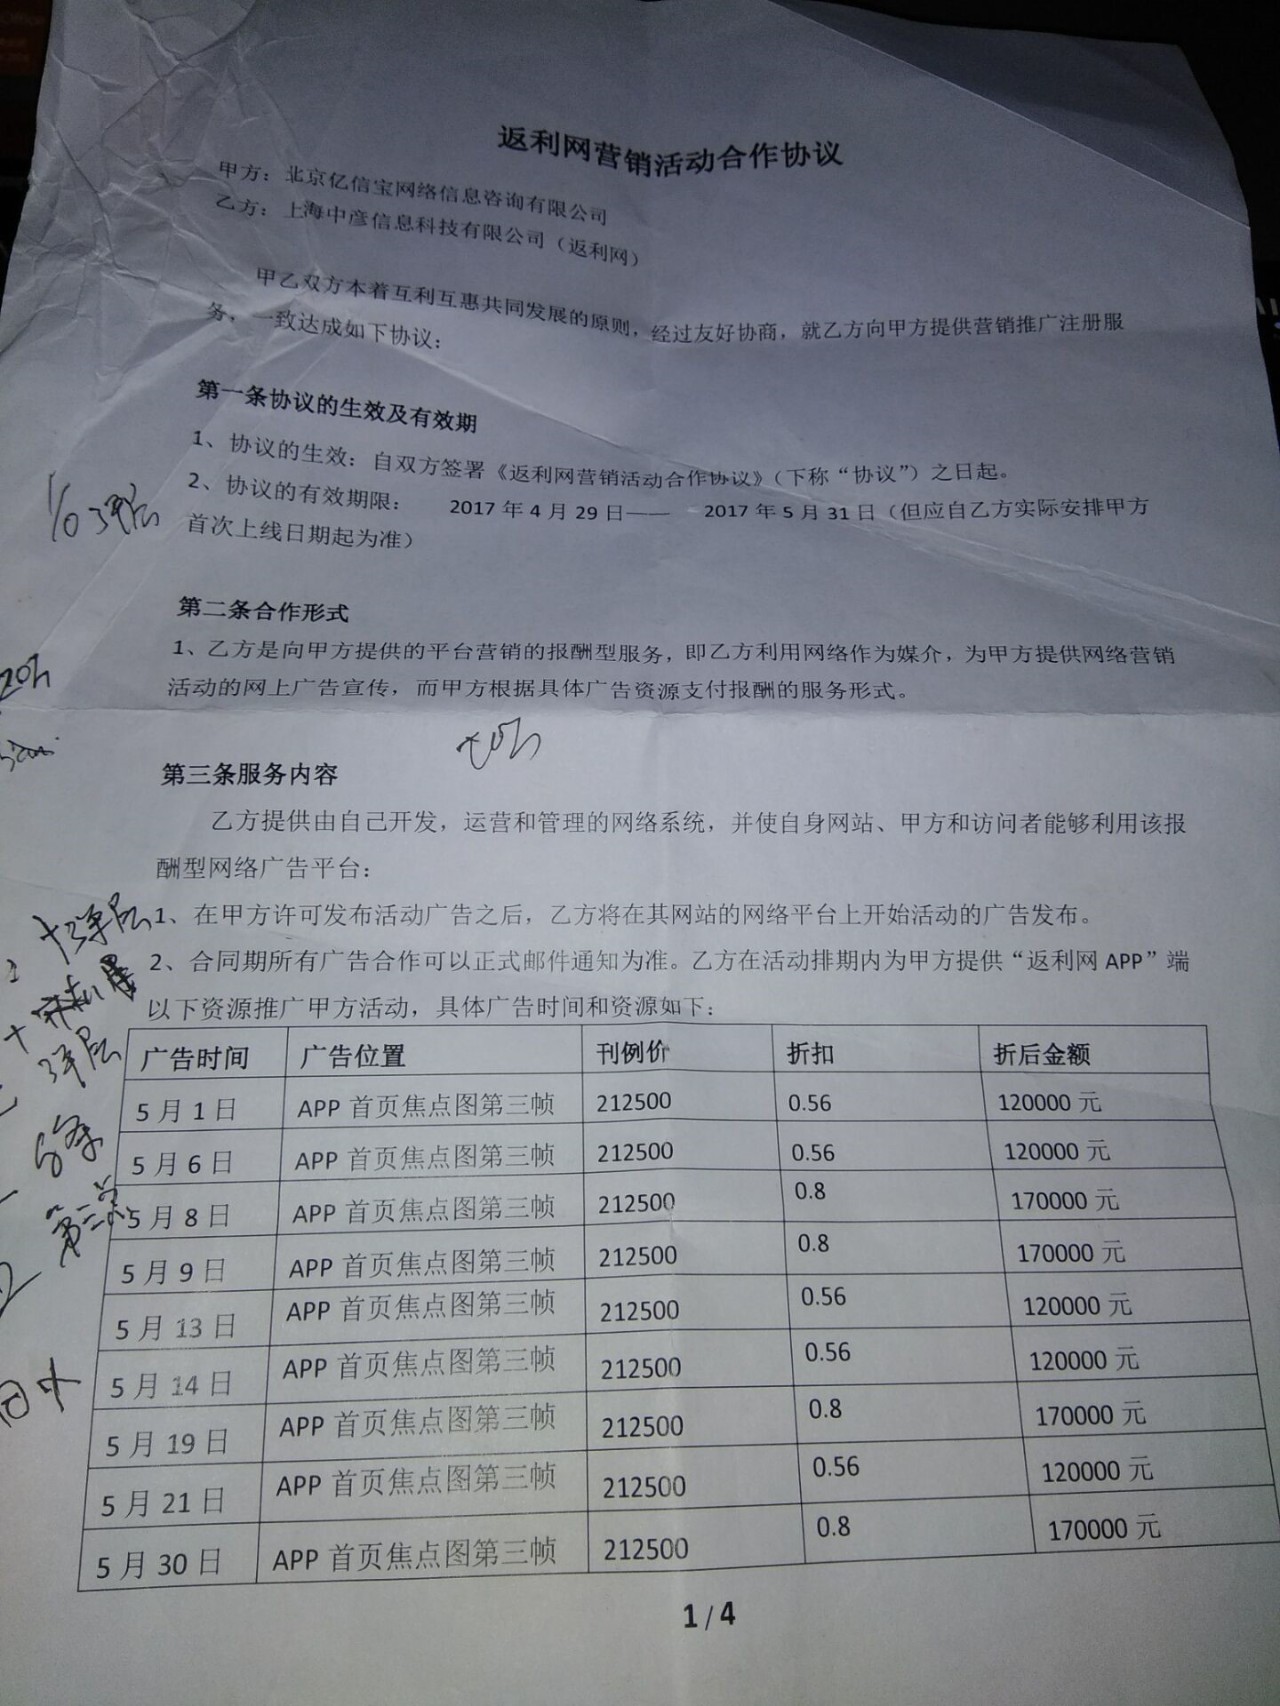 返利网营销活动合作协议
甲方：北京亿信宝网络信息咨询有限公司
乙方：上海中彦信息科技有限公司（返利网）
甲乙双方本着互利互惠共同发展的原则，经过友好协商，就乙方向甲方提供营销推广注册服
务，一致达成如下协议：
第一条协议的生效及有效期
1、协议的生效：自双方签署《返利网营销活动合作协议》（下称“协议”）之日起。
2、协议的有效期限： 2017 年 4 月 29 日—— 2017 年 5 月 31 日（但应自乙方实际安排甲方
首次上线日期起为准）
第二条合作形式
1、乙方是向甲方提供的平台营销的报酬型服务，即乙方利用网络作为媒介，为甲方提供网络营销
活动的网上广告宣传，而甲方根据具体广告资源支付报酬的服务形式。
第三条服务内容
乙方提供由自己开发，运营和管理的网络系统，并使自身网站、甲方和访问者能够利用该报
酬型网络广告平台：
1、在甲方许可发布活动广告之后，乙方将在其网站的网络平台上开始活动的广告发布。
2、合同期所有广告合作可以正式邮件通知为准。乙方在活动排期内为甲方提供“返利网 APP”端
以下资源推广甲方活动，具体广告时间和资源如下：
广告时间 广告位置 刊例价 折扣 折后金额
5 月 1 日 APP 首页焦点图第三帧 212500 0.56 120000 元
5 月 6 日 APP 首页焦点图第三帧 212500 0.56 120000 元
5 月 8 日 APP 首页焦点图第三帧 212500 0.8 170000 元
5 月 9 日 APP 首页焦点图第三帧 212500 0.8 170000 元
5 月 13 日 APP 首页焦点图第三帧 212500 0.56 120000 元
5 月 14 日 APP 首页焦点图第三帧 212500 0.56 120000 元
5 月 19 日 APP 首页焦点图第三帧 212500 0.8 170000 元
5 月 21 日 APP 首页焦点图第三帧 212500 0.56 120000 元
5 月 30 日 APP 首页焦点图第三帧 212500 0.8 170000 元
1 / 4